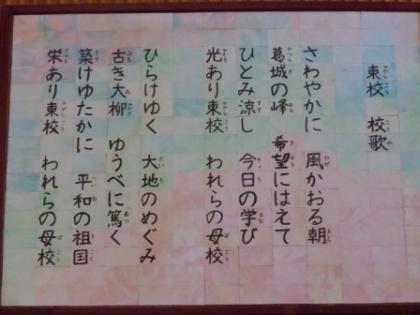 東校　校歌
さわやかに　風かおる朝
葛城の峰　希望にはえて
ひとみ涼し　今日の学び
光あり東校　われらの母校
ひらけゆく　大地のめぐみ
古き大柳　ゆうべに篤く
築けゆたかに　平和の祖国
栄あり東校　われらの母校